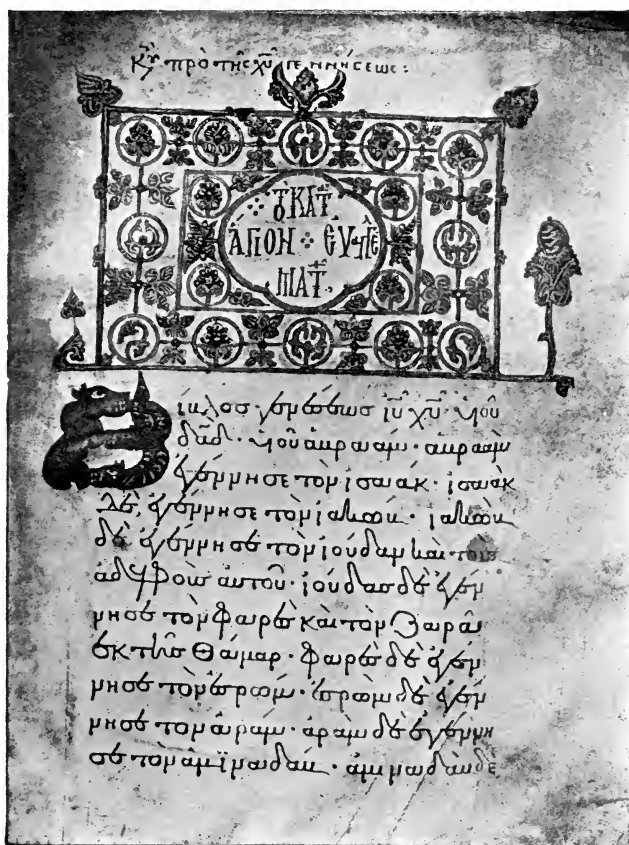 Κυ πρὸ τῆς χυ γεννήσεως:
τὸ κατ
ἅγιον εὐαγγε
ματ
ίβλος γενέσεως ιυ χυ· υἱοῦ
δαδ· υἱοῦ ἀβραάμ· ἀβραὰμ
ἐγέννησε τὸν ἰσαάκ· ἰσαὰκ
δὲ ἐγέννησε τὸν ἰακώβ· ἰακὼβ
δὲ ἐγέννησε τὸν ἰούδαν καὶ τοὺς
ἀδελφοὺς αὐτοῦ· ἰούδας δὲ ἐγέν
νησε τὸν φαρὲς καὶ τὸν ζαρὰ
ἐκ τῆς θάμαρ· φαρὲς δὲ ἐγέν
νησε τὸν ἐσρώμ· ἐσρὼμ δὲ ἐγέν
νησε τὸν ἀράμ· ἀρὰμ δὲ ἐγέννη
σε τὸν ἀμϊναδάβ· ἀμιναδὰβ δὲ